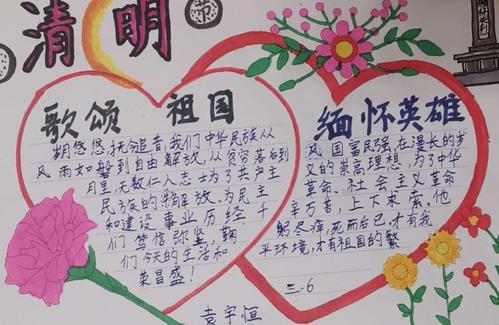 清明
歌颂 祖国
岁月悠悠,抚今追昔,我们中华民族从
风雨如磐到自由解放,从贫穷落后到
月星,无数仁人志士为了共产主
民族的解放、为民主
和建设事业历经千
们笃信弥坚,鞠
们今天的生活和
荣昌盛!
缅怀英雄
国富民强,在漫长的岁
义的崇高理想,为了中华
革命、社会主义革命
辛万苦,上下求索。他
躬尽瘁,死而后已,才有我
平环境,才有祖国的繁
三.6
袁宇恒